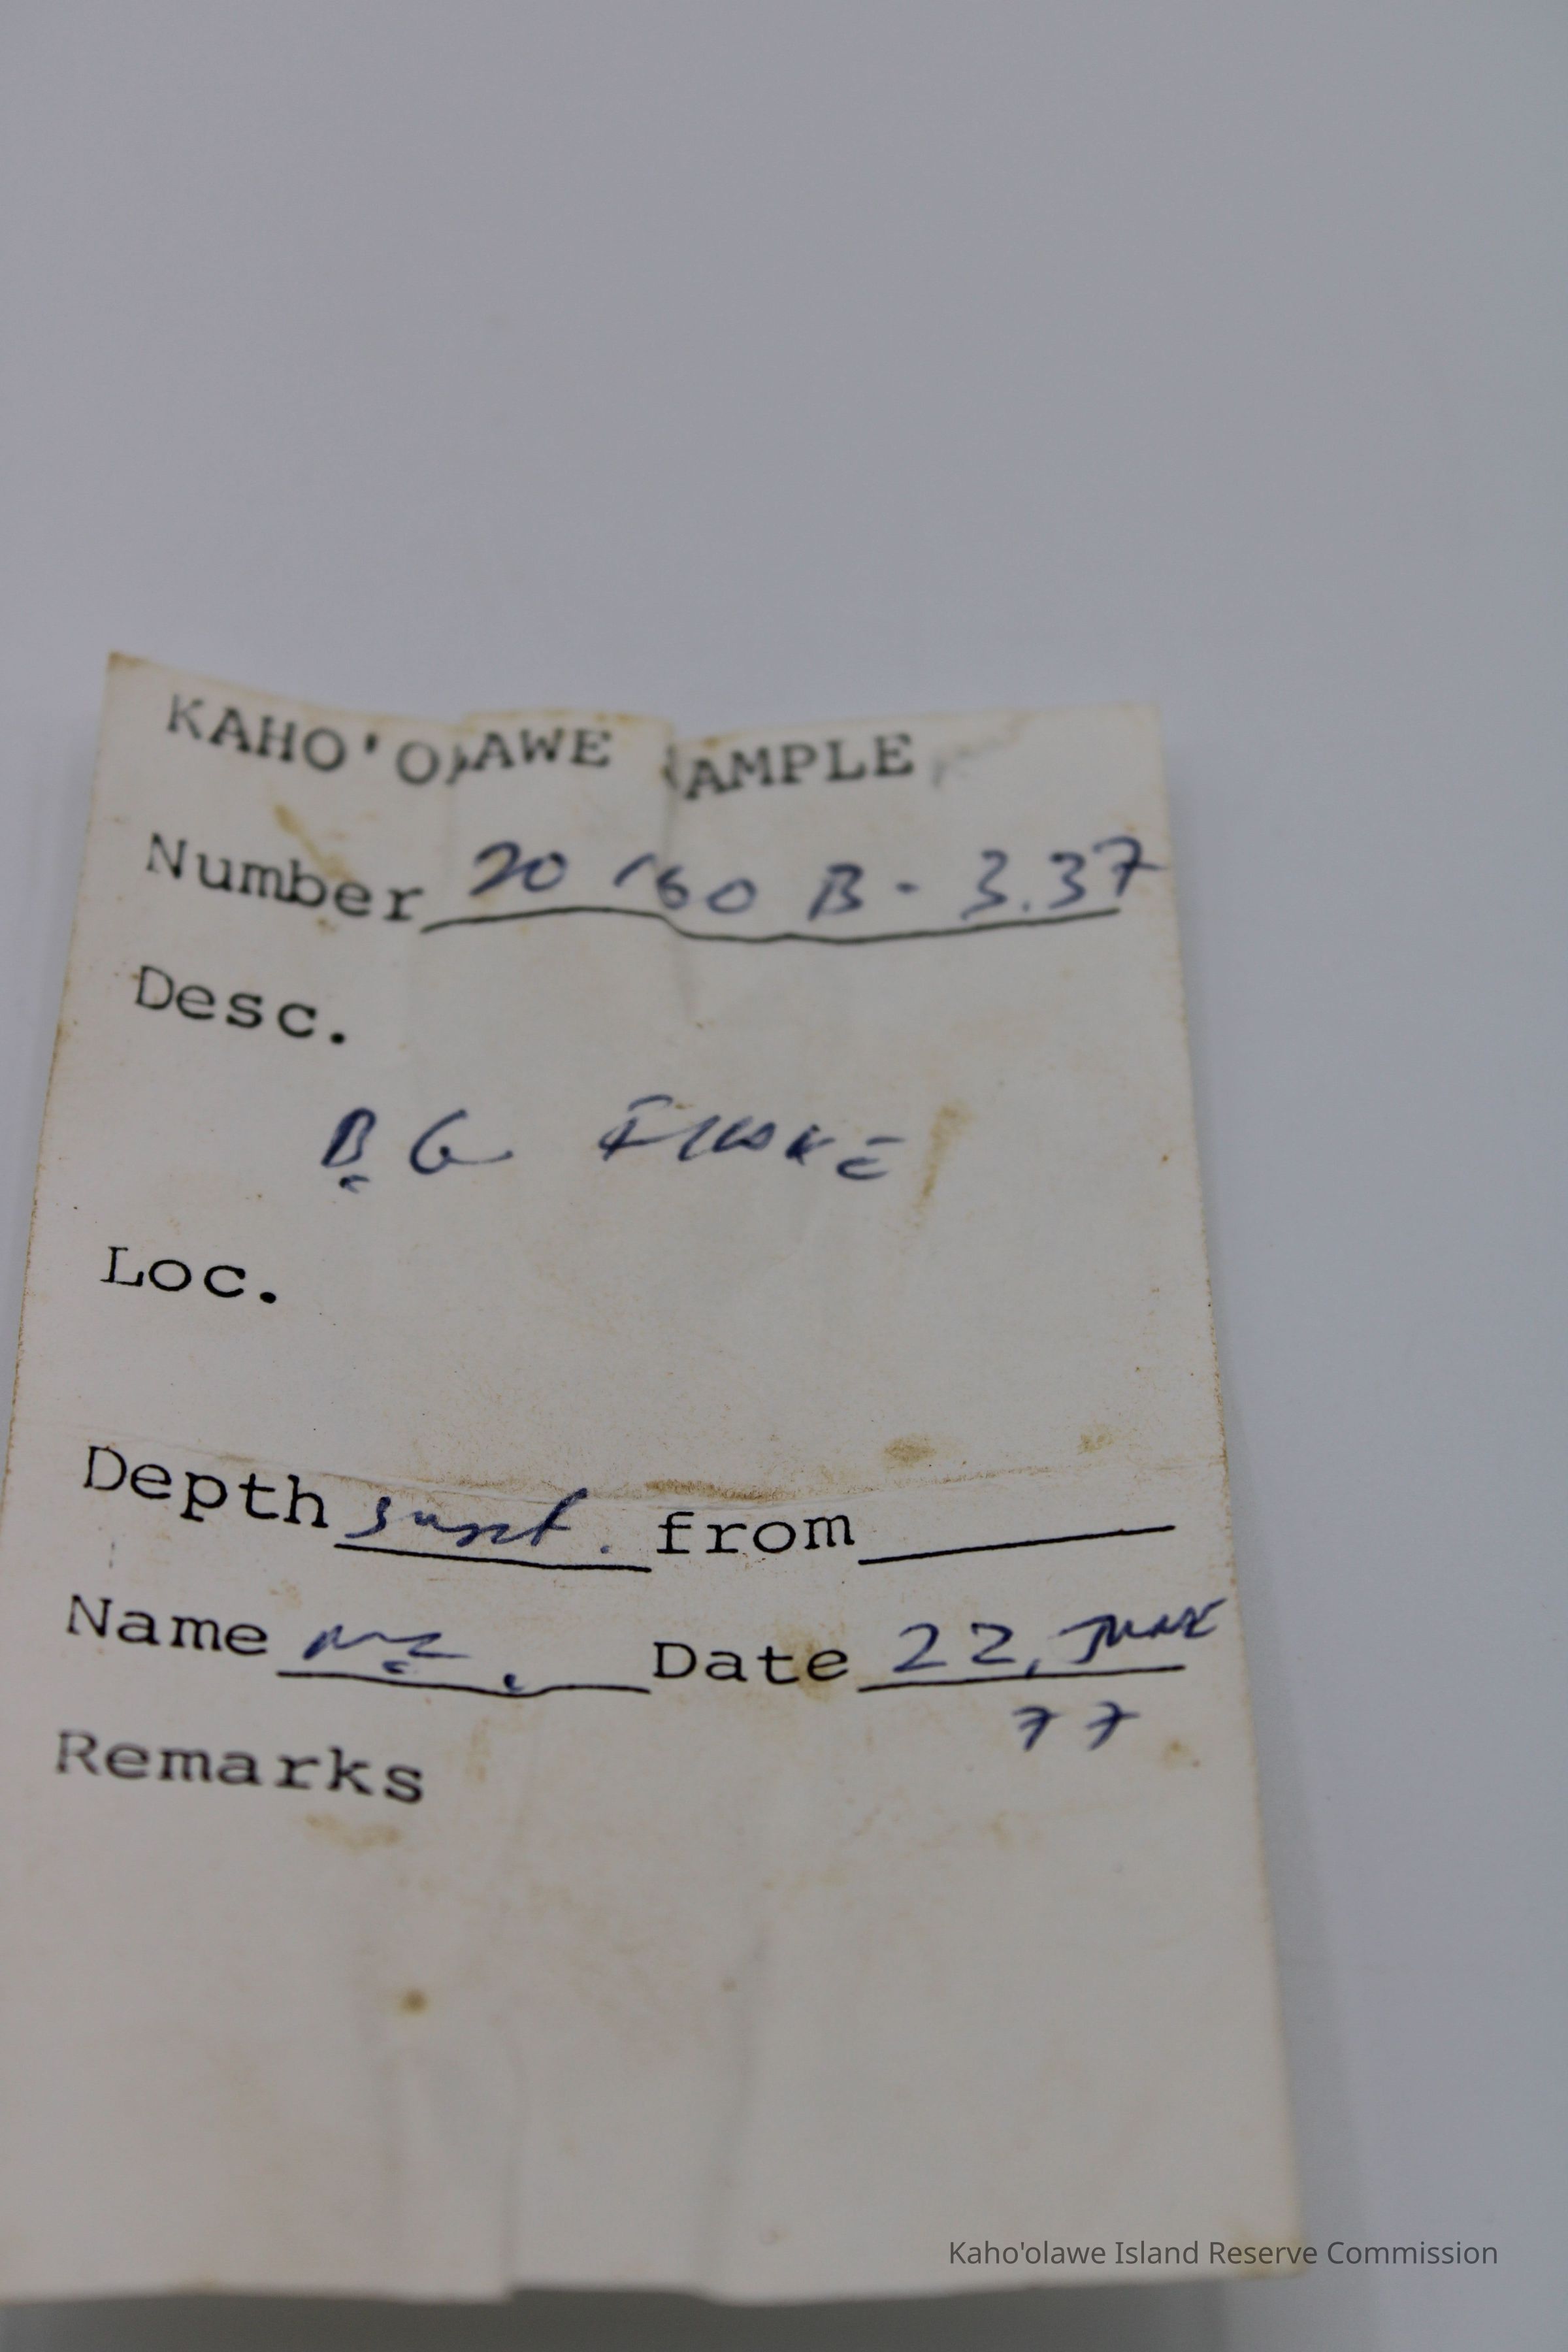 KAHO'OLAWE SAMPLE
Number 20 160 B - 3.37
Desc.
B.G. FLAKE
Loc.
Depth surf. from
Name Date 22, JUNE
77
Remarks
Kaho'olawe Island Reserve Commission